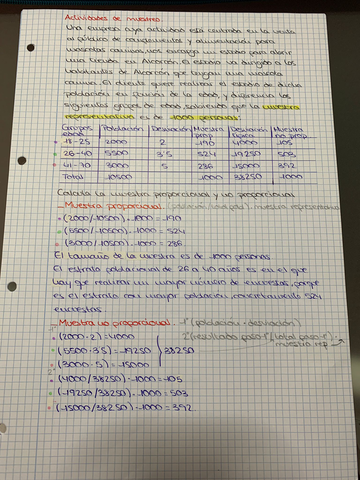 Actividades de muestreo.
Una empresa cuya actividad está centrada en la venta
al público de complementos y alimentación para
mascotas caninas, nos encarga un estudio para abrir
una tienda en Alcorcón. El estudio va dirigido a los
habitantes de Alcorcón que tengan una mascota
canina. El cliente quiere realizar el estudio de dicha
población en función de la edad, y diferencia los
siguientes grupos de edad, sabiendo que la muestra
representativa es de 1000 personas:
Grupos edad Población Desviación Muestra prop. Desviación típica Muestra no prop.
18-25 2000 2 190 4000 105
26-40 5500 3'5 524 19250 503
41-70 3000 5 286 15000 392
Total 10500 1000 38250 1000
Calcula la muestra proporcional y no proporcional.
Muestra proporcional: muestra representativa
(2000/10500) · 1000 = 190
(5500/10500) · 1000 = 524
(3000/10500) · 1000 = 286
El tamaño de la muestra es de 1000 personas
El estrato poblacional de 26 a 40 años es en el que
hay que realizar un mayor número de encuestas, porque
es el estrato con mayor población, concretamente 524
encuestas.
Muestra no proporcional: 1º (población · desviación)
(2000 · 2) = 4000 2º (resultado paso 1º / total paso 1º) ·
(5500 · 3'5) = 19250 38250 muestra rep
(3000 · 5) = 15000
2º
(4000/38250) · 1000 = 105
(19250/38250) · 1000 = 503
(15000/38250) · 1000 = 392